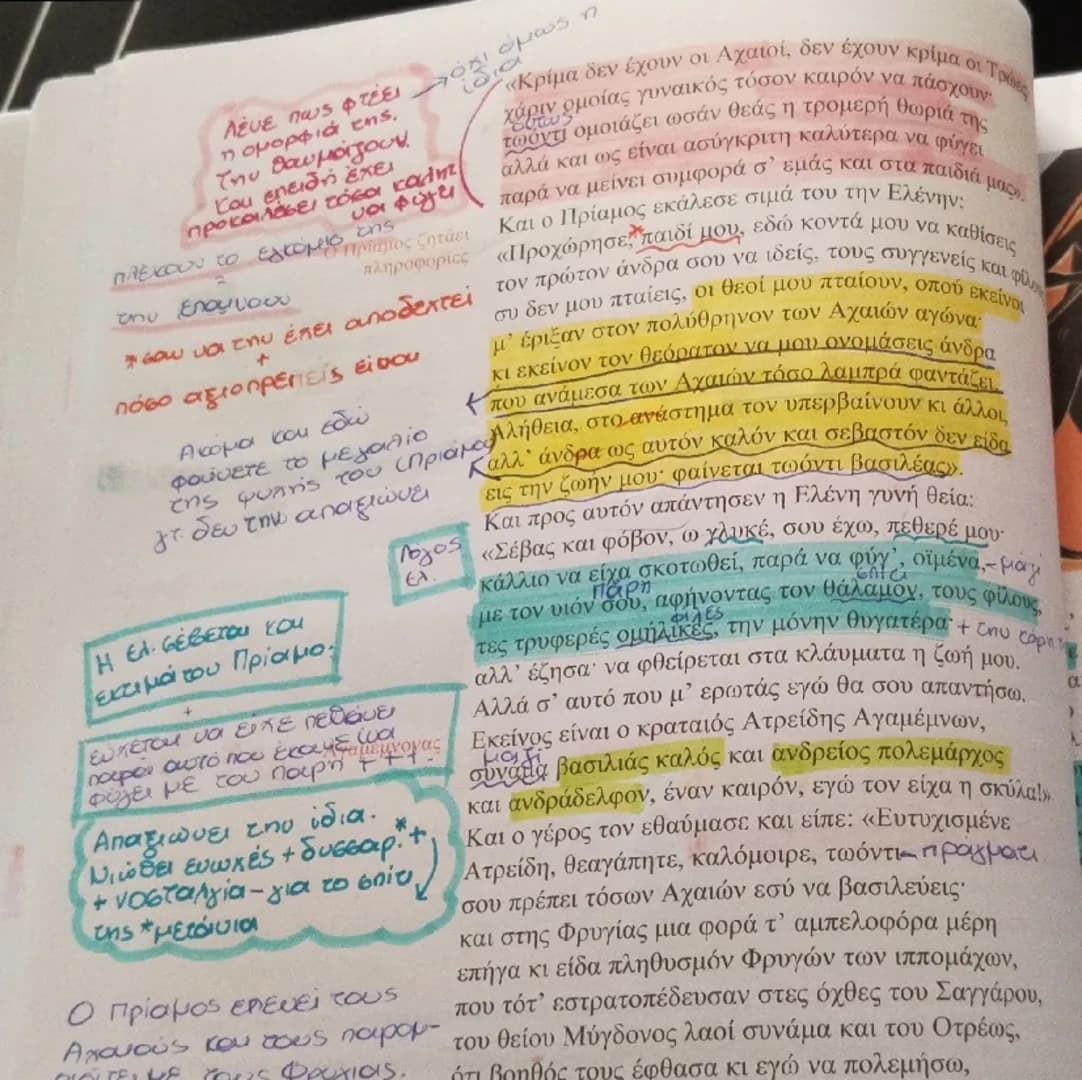 όχι όμως η
ίδια
Λένε πως φταίει
η ομορφιά της.
Την θαυμάζουν
και επειδή έχει
προκαλέσει τόσα καλή
να φύγει
πλέκουν το εγκώμιο της
την επαινούν
Ο Πρίαμος ζητάει
πληροφορίες
*σαν να την έχει αποδεχτεί
+
πόσο αξιοπρεπείς είναι
Ακόμα και εδώ
φαίνετε το μεγαλείο
της ψυχής του (Πρίαμος)
γτ. δεν την απαξιώνει
Λόγος
Ελ.
Η Ελ. σέβεται και
εκτιμά τον Πρίαμο.
+
εύχεται να είχε πεθάνει
παρά αυτό που έκανε (να
φύγει με τον Πάρη +++.
Αγαμέμνονας
Απαξιώνει την ίδια.
Νιώθει ενοχές + δυσσαρ.* +
+ νοσταλγία – για το σπίτι
της *μετάνοια
Ο Πρίαμος επενεί τους
Αχαιούς και τους παρομ-
τους Φρυγιας.
«Κρίμα δεν έχουν οι Αχαιοί, δεν έχουν κρίμα οι Τρώες
χάριν ομοίας γυναικός τόσον καιρόν να πάσχουν·
όντως
τωόντι ομοιάζει ωσάν θεάς η τρομερή θωριά της
αλλά και ως είναι ασύγκριτη καλύτερα να φύγει
παρά να μείνει συμφορά σ' εμάς και στα παιδιά μας».
Και ο Πρίαμος εκάλεσε σιμά του την Ελένην:
«Προχώρησε,* παιδί μου, εδώ κοντά μου να καθίσεις
τον πρώτον άνδρα σου να ιδείς, τους συγγενείς και φίλους
συ δεν μου πταίεις, οι θεοί μου πταίουν, οπού εκείνοι
μ' έριξαν στον πολύθρηνον των Αχαιών αγώνα·
κι εκείνον τον θεόρατον να μου ονομάσεις άνδρα
που ανάμεσα των Αχαιών τόσο λαμπρά φαντάζει.
Αλήθεια, στο ανάστημα τον υπερβαίνουν κι άλλοι,
αλλ' άνδρα ως αυτόν καλόν και σεβαστόν δεν είδα
εις την ζωήν μου· φαίνεται τωόντι βασιλέας».
Και προς αυτόν απάντησεν η Ελένη γυνή θεία:
«Σέβας και φόβον, ω γλυκέ, σου έχω, πεθερέ μου·
κάλλιο να είχα σκοτωθεί, παρά να φύγ', οϊμένα, – μαζί
Πάρη σπίτι
με τον υιόν σου, αφήνοντας τον θάλαμον, τους φίλους,
φίλες
τες τρυφερές ομήλικες, την μόνην θυγατέρα· + την κόρη
αλλ' έζησα· να φθείρεται στα κλάυματα η ζωή μου.
Αλλά σ' αυτό που μ' ερωτάς εγώ θα σου απαντήσω.
Εκείνος είναι ο κραταιός Ατρείδης Αγαμέμνων,
μαζί
συνάμα βασιλιάς καλός και ανδρείος πολεμάρχος
και ανδράδελφον, έναν καιρόν, εγώ τον είχα η σκύλα!»
Και ο γέρος τον εθαύμασε και είπε: «Ευτυχισμένε
Ατρείδη, θεαγάπητε, καλόμοιρε, τωόντι – πράγματι
σου πρέπει τόσων Αχαιών εσύ να βασιλεύεις·
και στης Φρυγίας μια φορά τ' αμπελοφόρα μέρη
επήγα κι είδα πληθυσμόν Φρυγών των ιππομάχων,
που τότ' εστρατοπέδευσαν στες όχθες του Σαγγάρου,
του θείου Μύγδονος λαοί συνάμα και του Οτρέως,
ότι βοηθός τους έφθασα κι εγώ να πολεμήσω,